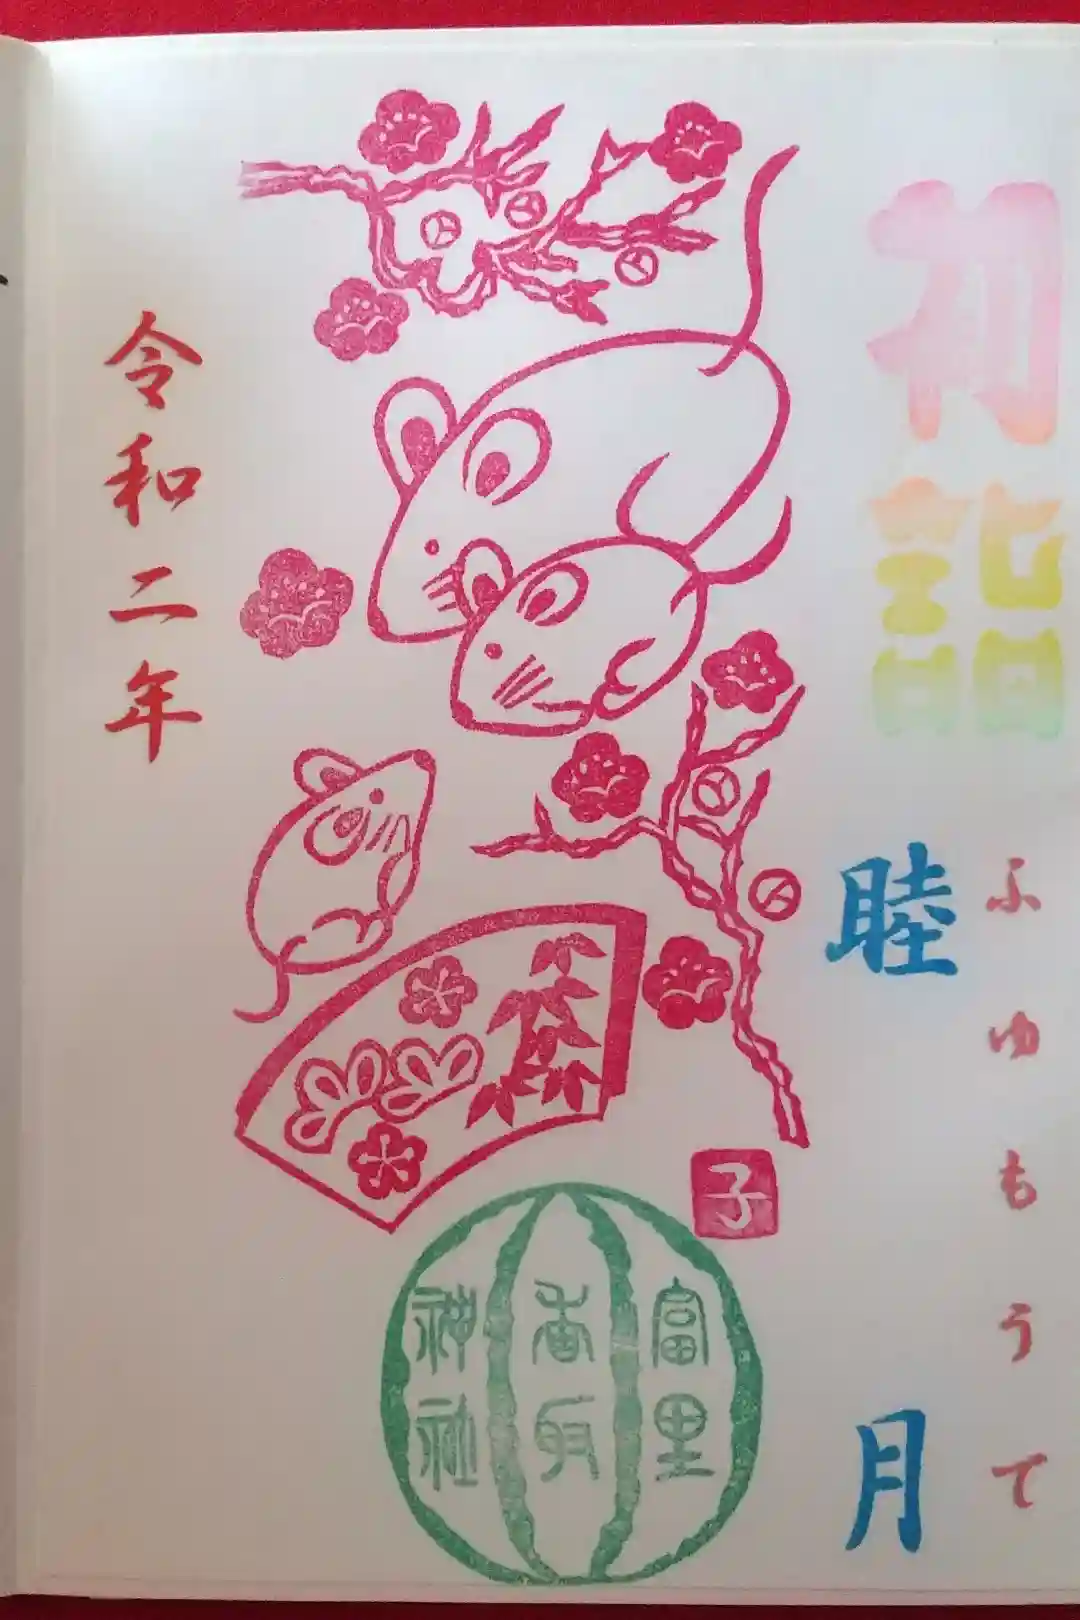 初詣
ふゆもうで
睦月
子
富里
香取
神社
令和二年